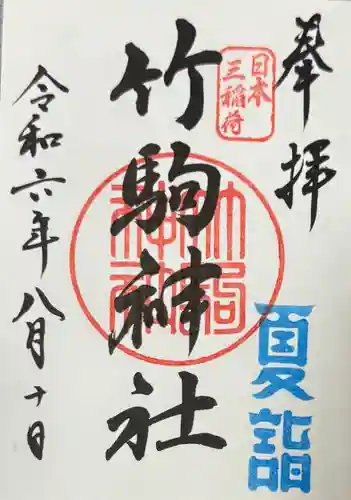 奉拝
日本
三稲荷
竹駒神社
夏詣
令和六年八月十日
竹駒
神社